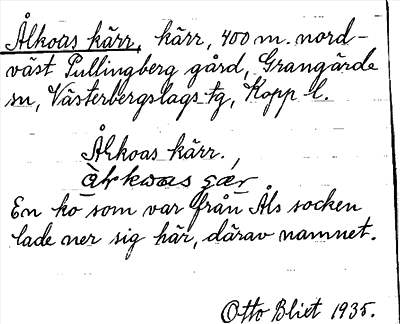 Ålkoas kärr, kärr, 400 m. nord-
väst Pullingberg gård, Grangärde
sn, Västerbergslags tg, Kopp l.
Ålkoas kärr.
En ko som var från Åls socken
lade ner sig här, därav namnet.
Otto Blixt 1935.